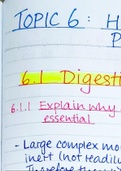 TOPIC 6: H
P
6.1 Digesti
6.1.1 Explain why
essential
- Large complex mo
inert (not readil
Therefore the